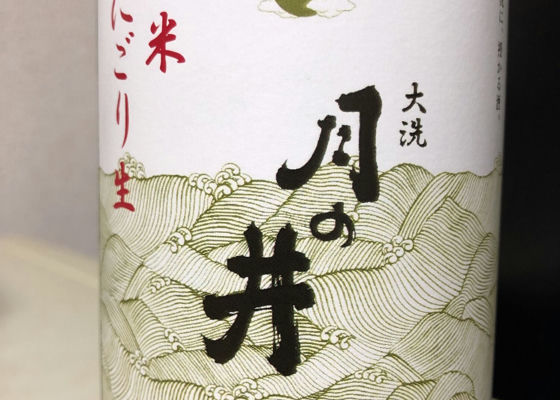 大洗
月の井
米
にごり生